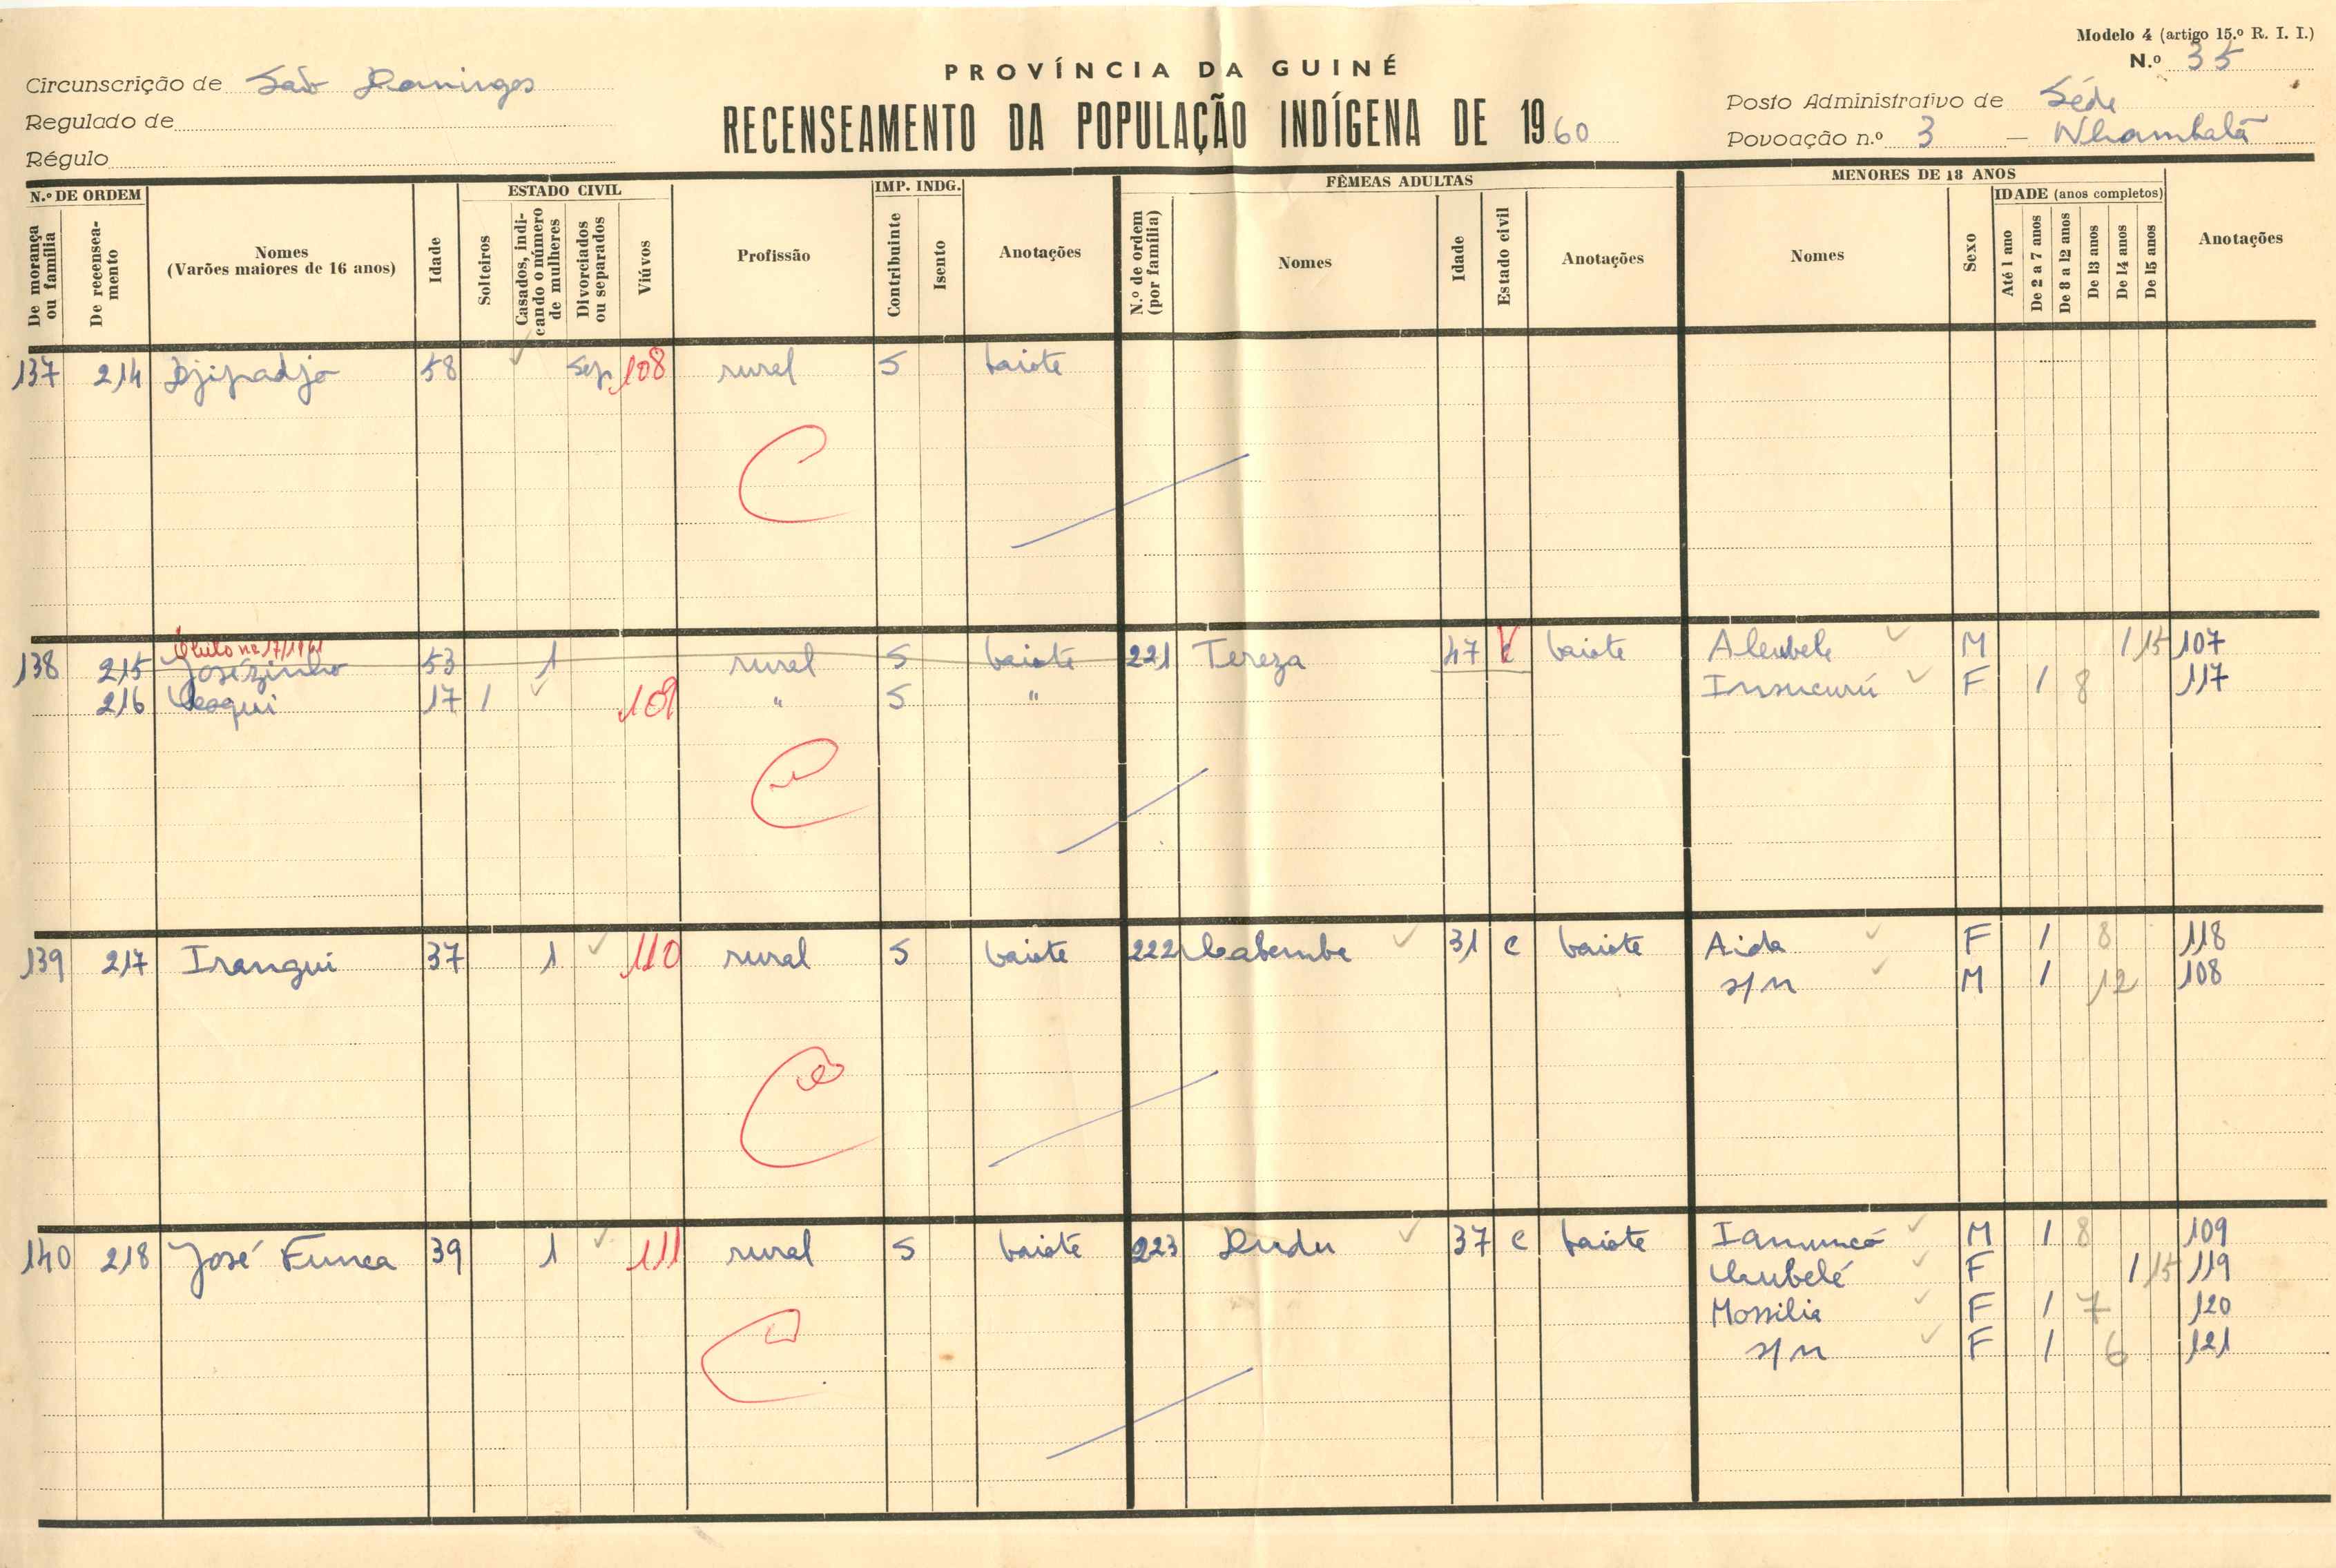 Modelo 4 (artigo 15.º R. I. I.)
N.º 35
PROVÍNCIA DA GUINÉ
RECENSEAMENTO DA POPULAÇÃO INDÍGENA DE 1960
Circunscrição de São Domingos
Regulado de
Régulo
Posto Administrativo de Séde
Povoação n.º 3 — Nhambalã
N.º DE ORDEM
De morança ou família
De recenseamento
Nomes
(Varões maiores de 16 anos)
Idade
ESTADO CIVIL
Solteiros
Casados, indicando o número de mulheres
Divorciados ou separados
Viúvos
Profissão
IMP. INDG.
Contribuinte
Isento
Anotações
FÊMEAS ADULTAS
N.º de ordem (por família)
Nomes
Idade
Estado civil
Anotações
MENORES DE 18 ANOS
Nomes
Sexo
IDADE (anos completos)
Até 1 ano
De 2 a 7 anos
De 8 a 12 anos
De 13 anos
De 14 anos
De 15 anos
Anotações
137 214 Djipadjo 58 Sep 108 rural S baiote
138 215 Josézinho 53 1 rural S baiote 221 Tereza 47 V baiote Aleubele M 1 15 107
216 17 1 109 " S " Insucurú F 1 8 117
139 217 Irangui 37 1 110 rural S baiote 222 Cabembe 31 C baiote Aida F 1 8 118
s/n M 1 12 108
140 218 José Funca 39 1 111 rural S baiote 223 Dudu 37 C baiote Iamuncó M 1 8 109
F 1 15 119
Mossilia F 1 7 120
s/n F 1 6 121